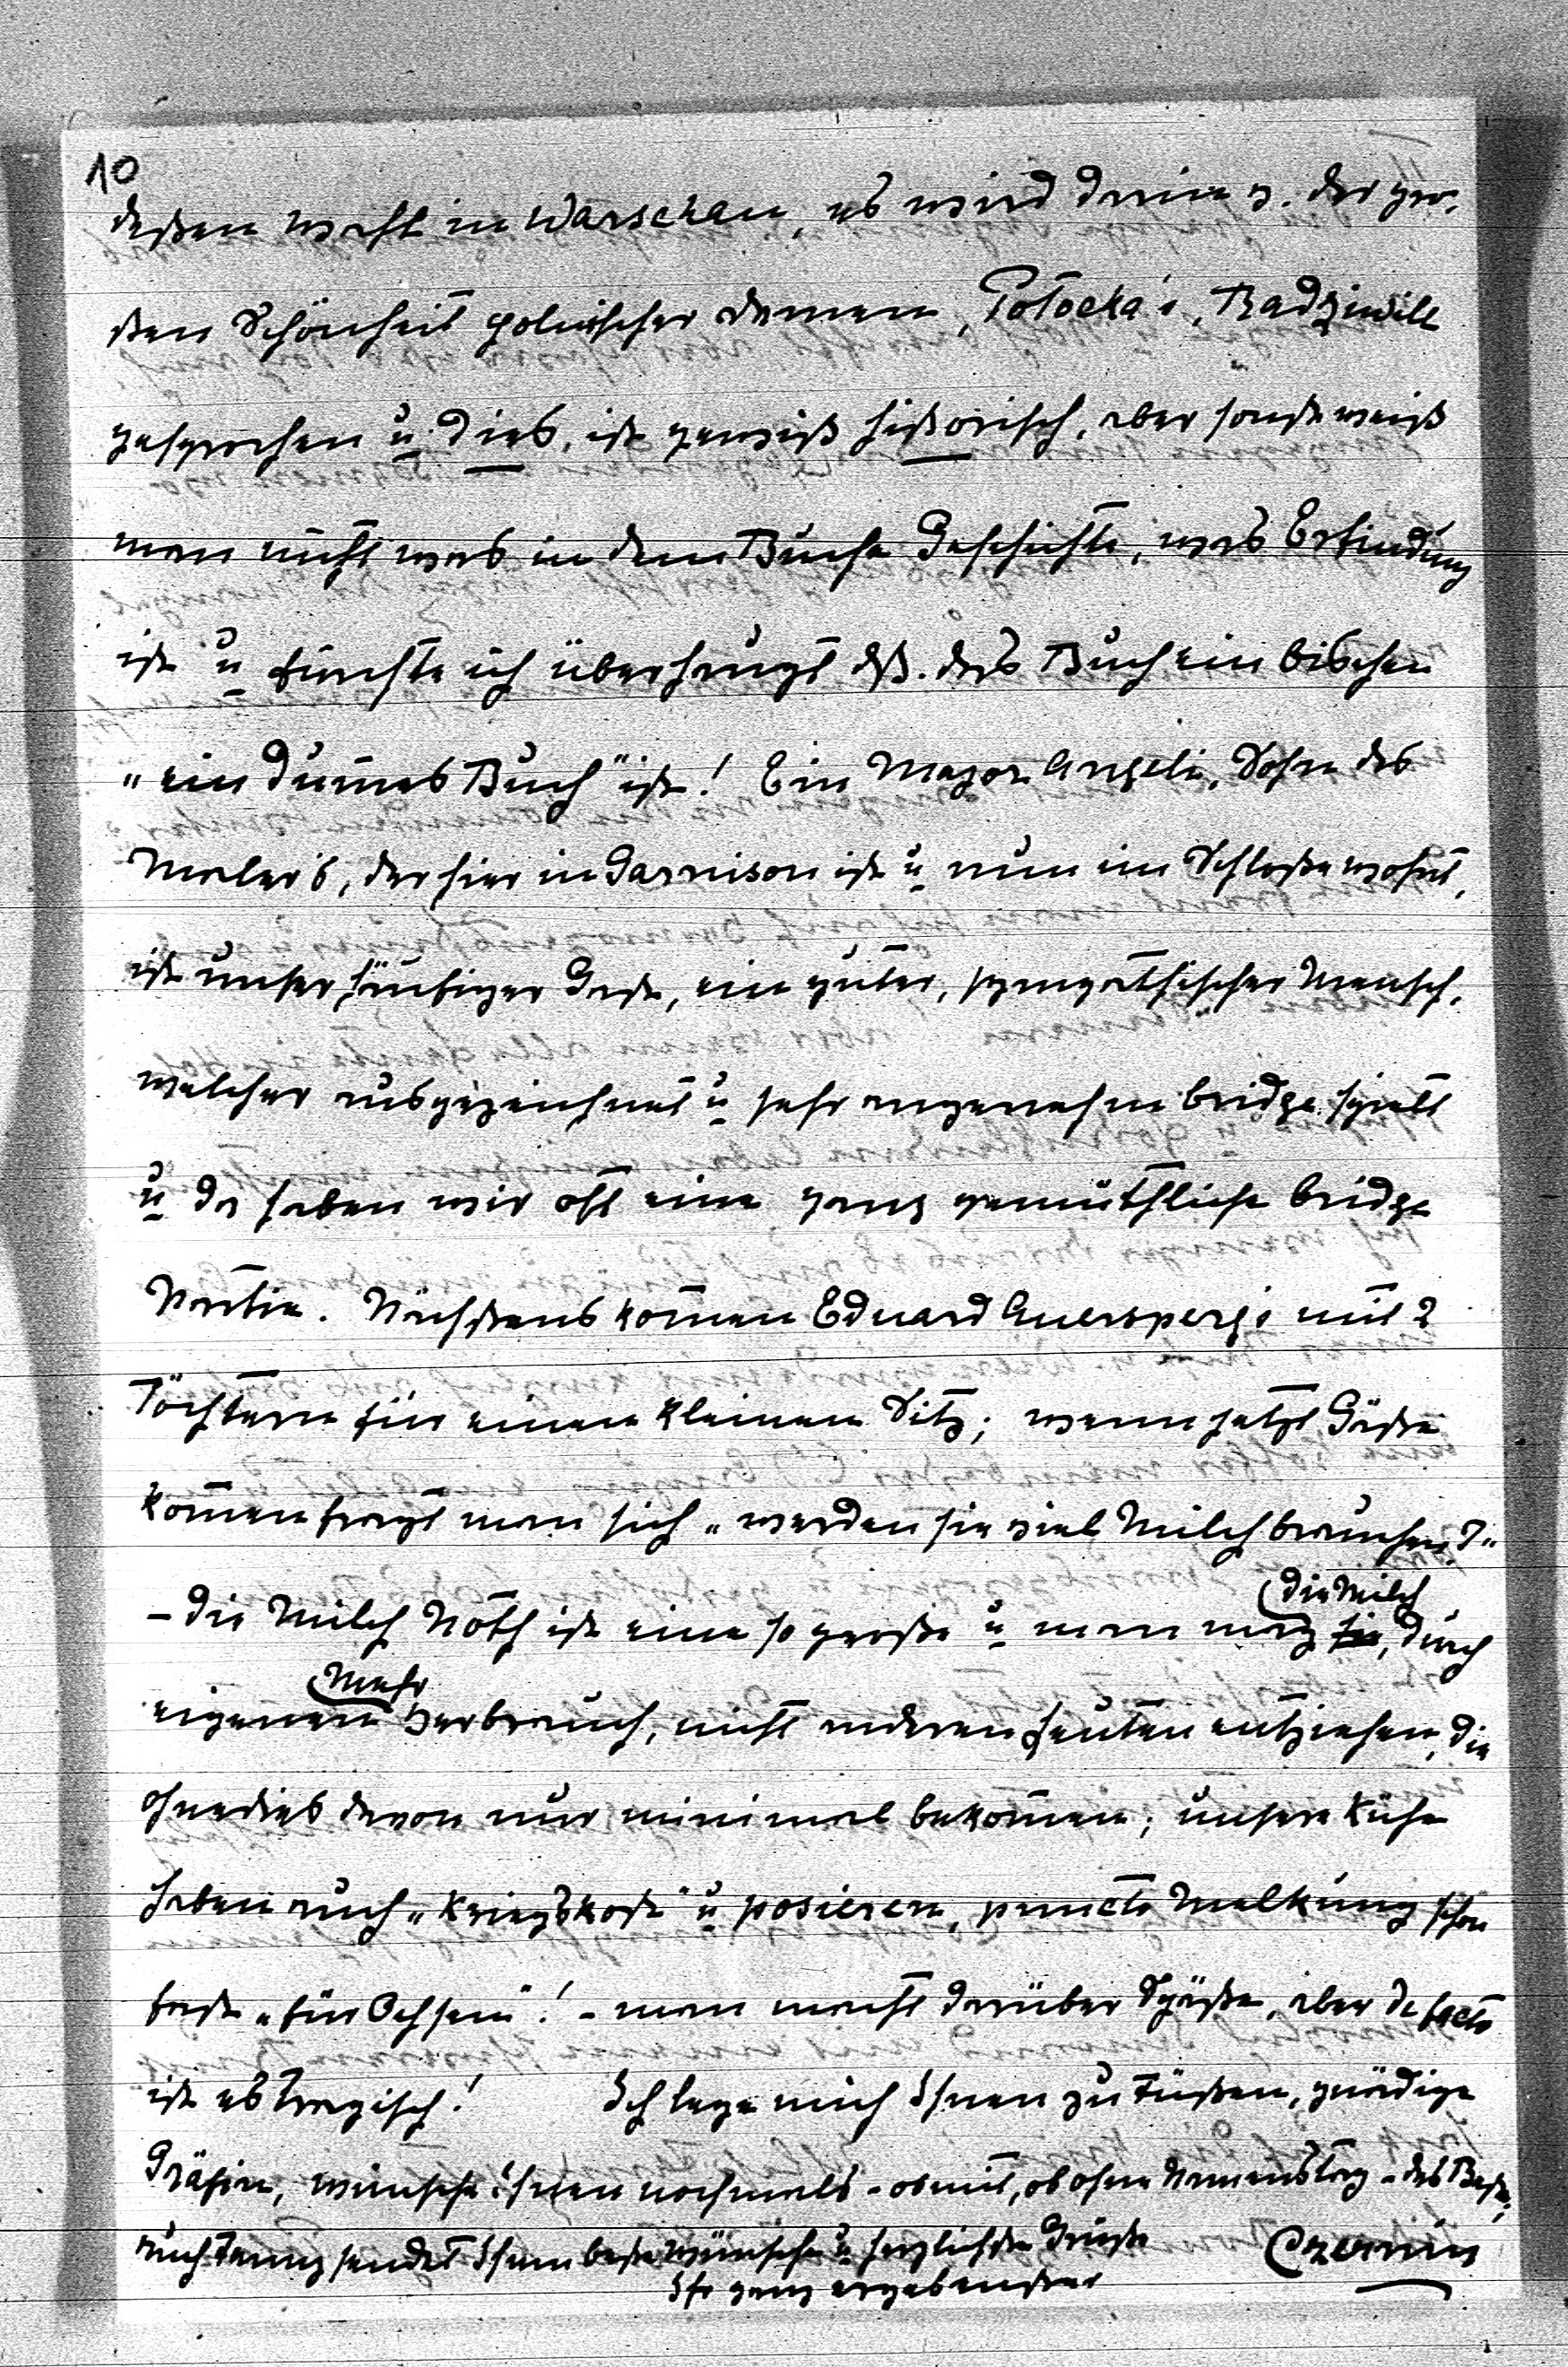 10
deßen Macht in Warschau, es wird darin v. der gro-
ßen Schönheit polnischer Damen, Potocka's, Radziwill
gesprochen u. dies, ist gewiß historisch, aber sonst weiß
man nicht was in dem Buche Geschichte, was Erfindung
ist u fürchte ich überhaupt dß. das Buch ein bischen
„ein dum̄es Buch" ist! Ein Major Angeli, Sohn des
Maler's, der hier in Garnison ist u nun im Schloße wohnt,
ist unser häufiger Gast, ein guter, sympathischer Mensch,
welcher ausgezeichnet u sehr angenehm bridge spielt
u da haben wir oft eine ganz gemüthliche bridge
Partie. Nächstens kom̄en Eduard Auersperg's mit 2
Töchtern für einen kleinen Sitz; wenn jetzt Gäste
kom̄en fragt man sich „werden sie viel Milch brauchen?"
– die Milch Noth ist eine so große u man mag die Milch, durch
eigenen Mehr Verbrauch, nicht anderen Leuten entziehen, die
ohnedies davon nur minimal bekom̄en; unsere Kühe
haben auch „Kriegskost" u posieren, puncto Melkung schon
fast „für Ochsen"! – man macht darüber Späße, aber de facto
ist es tragisch! Ich lege mich Ihnen zu Füßen, gnädige
Gräfin, wünsche Ihnen nochmals – ob mit, ob ohne Namenstag – das Beste,
auch Franz sendet Ihnen beste Wünsche u herzlichste Grüße
Ihr ganz ergebenster
Czernin